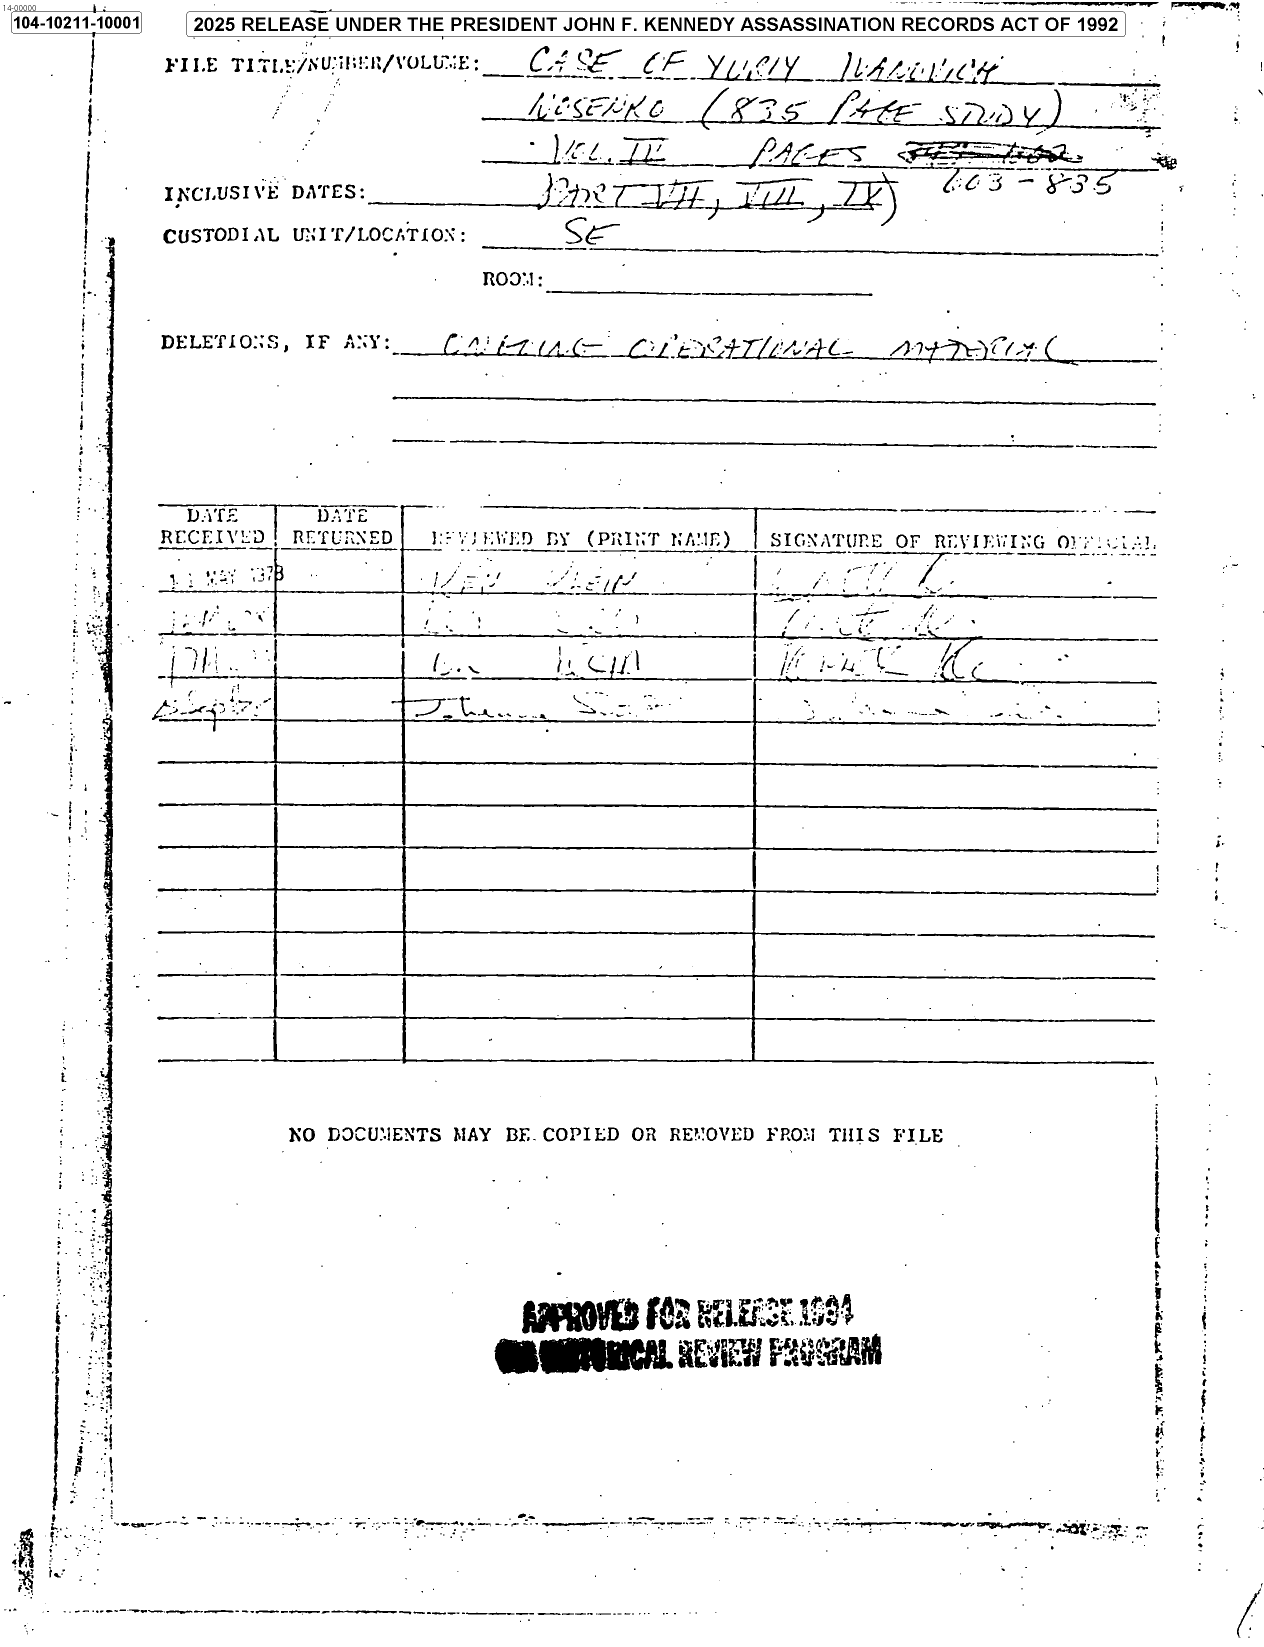 14-00000
104-10211-10001
2025 RELEASE UNDER THE PRESIDENT JOHN F. KENNEDY ASSASSINATION RECORDS ACT OF 1992
FILE TITLE/NUMBER/VOLUME: CASE OF YURIY IVANOVICH
NOSENKO (835 PAGE STUDY)
VOL. IV PAGES
603-835
INCLUSIVE DATES: PART VII, VIII, IX)
CUSTODIAL UNIT/LOCATION: SE
ROOM:
DELETIONS, IF ANY: ONGOING OPERATIONAL MATERIAL
DATE RECEIVED DATE RETURNED REVIEWED BY (PRINT NAME) SIGNATURE OF REVIEWING OFFICIAL
11 MAY 1978 KEN KLEIN
Ken Klein
Johanna
NO DOCUMENTS MAY BE COPIED OR REMOVED FROM THIS FILE
APPROVED FOR RELEASE 1994
CIA HISTORICAL REVIEW PROGRAM